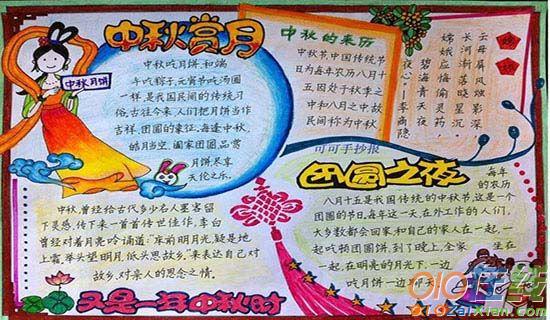 中秋赏月
中秋月饼
中秋吃月饼,和端
午吃粽子、元宵节吃汤圆
一样,是我国民间的传统习
俗。古往今来,人们把月饼当作
吉祥、团圆的象征,每逢中秋,
皓月当空,阖家团圆,品赏
月饼尽享
天伦之乐。
中秋的来历
中秋节,中国传统节
日为每年农历八月十
五因处于秋季之
中和八月之中,故
民间称为中秋
嫦娥
云母屏风烛影深
长河渐落晓星沉
嫦娥应悔偷灵药
碧海青天夜
夜心——李商隐
可可手抄报
团圆之夜
每年
的农历
八月十五是我国传统的中秋节,这是一个
团圆的节日,每年这一天,在外工作的人们,
大多数都会回家,和自己的家人在一起,一
起吃顿团圆饼,到了晚上,全家
坐在
一起,在明亮的月光下,一边
吃月饼一边聊天
中秋,曾经给古代多少名人墨客留
下灵感,传下来一首首传世佳作,李白
曾经对着月亮吟诵道:“床前明月光,疑是地
上霜,举头望明月,低头思故乡。”来表达自己对
故乡,对亲人的思念之情。
又是一年中秋时
010在线
010zaixian.com